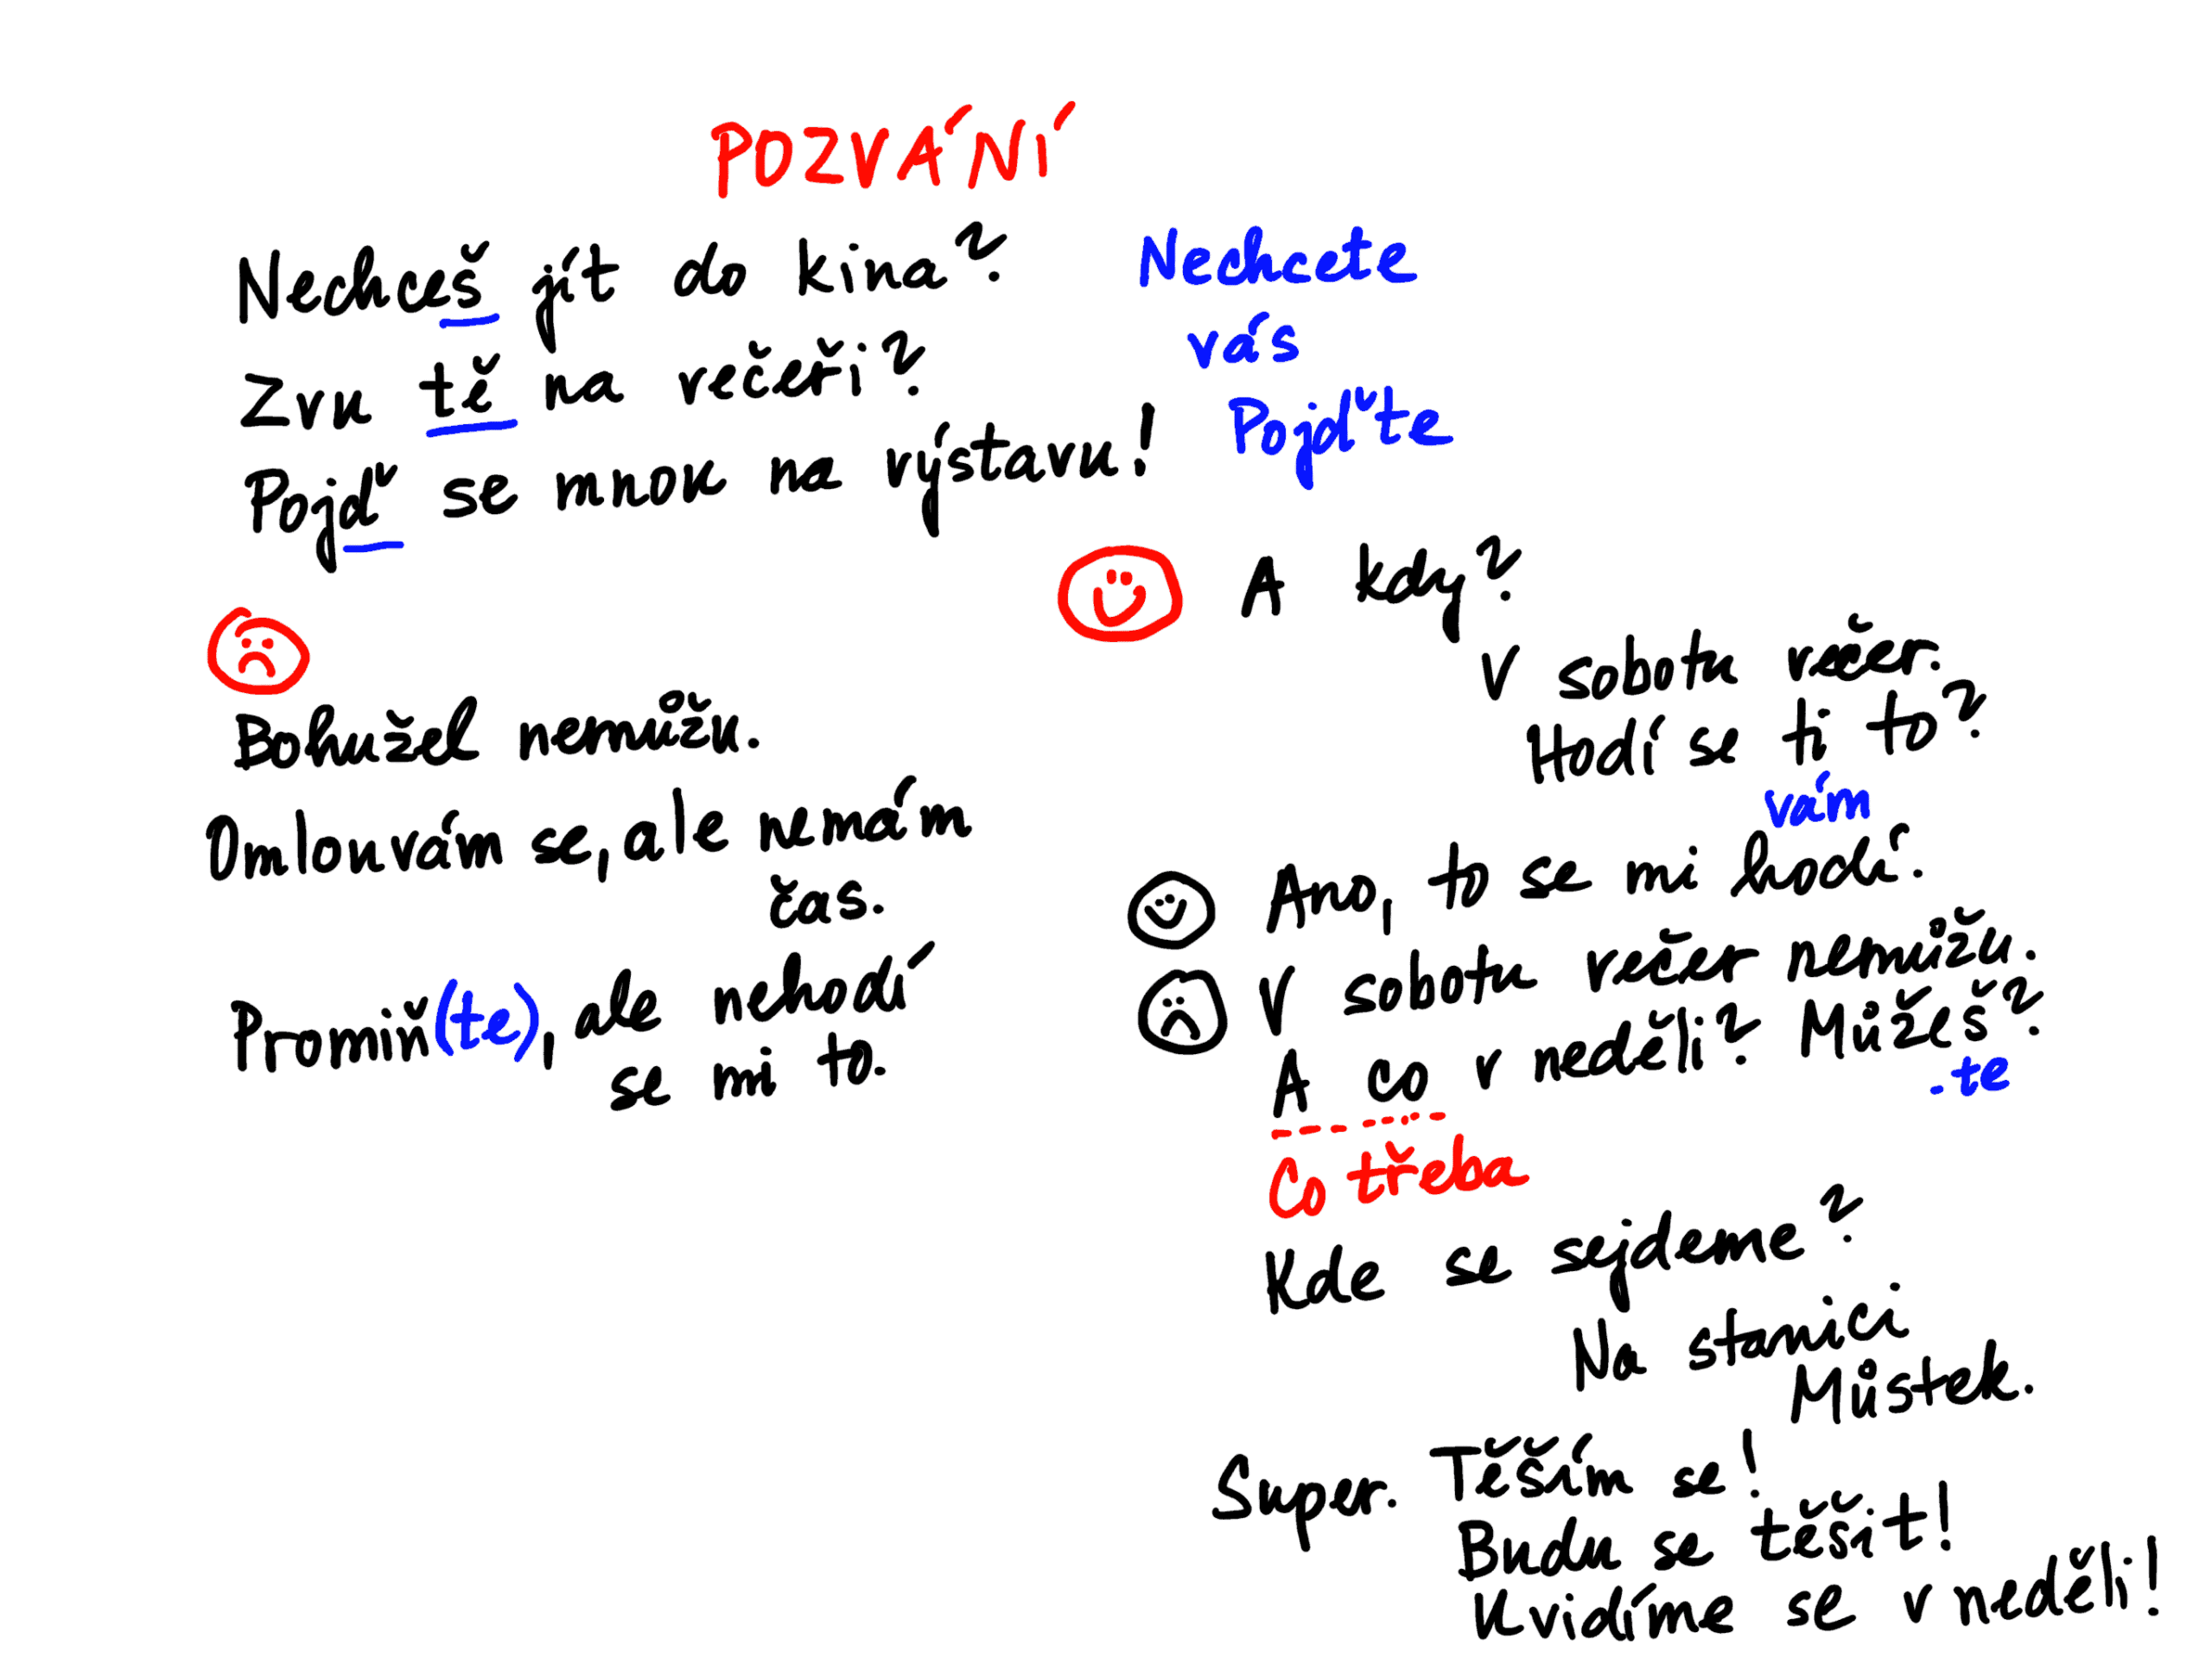 POZVÁNÍ
Nechceš jít do kina?
Zvu tě na večeři?
Pojď se mnou na výstavu!
Nechcete
vás
Pojďte
Bohužel nemůžu.
Omlouvám se, ale nemám
čas.
Promiň(te), ale nehodí
se mi to.
A kdy?
V sobotu večer.
Hodí se ti to?
vám
Ano, to se mi hodí.
V sobotu večer nemůžu.
A co v neděli? Můžeš?
-te
Co třeba
Kde se sejdeme?
Na stanici
Můstek.
Super. Těším se!
Budu se těšit!
Uvidíme se v neděli!